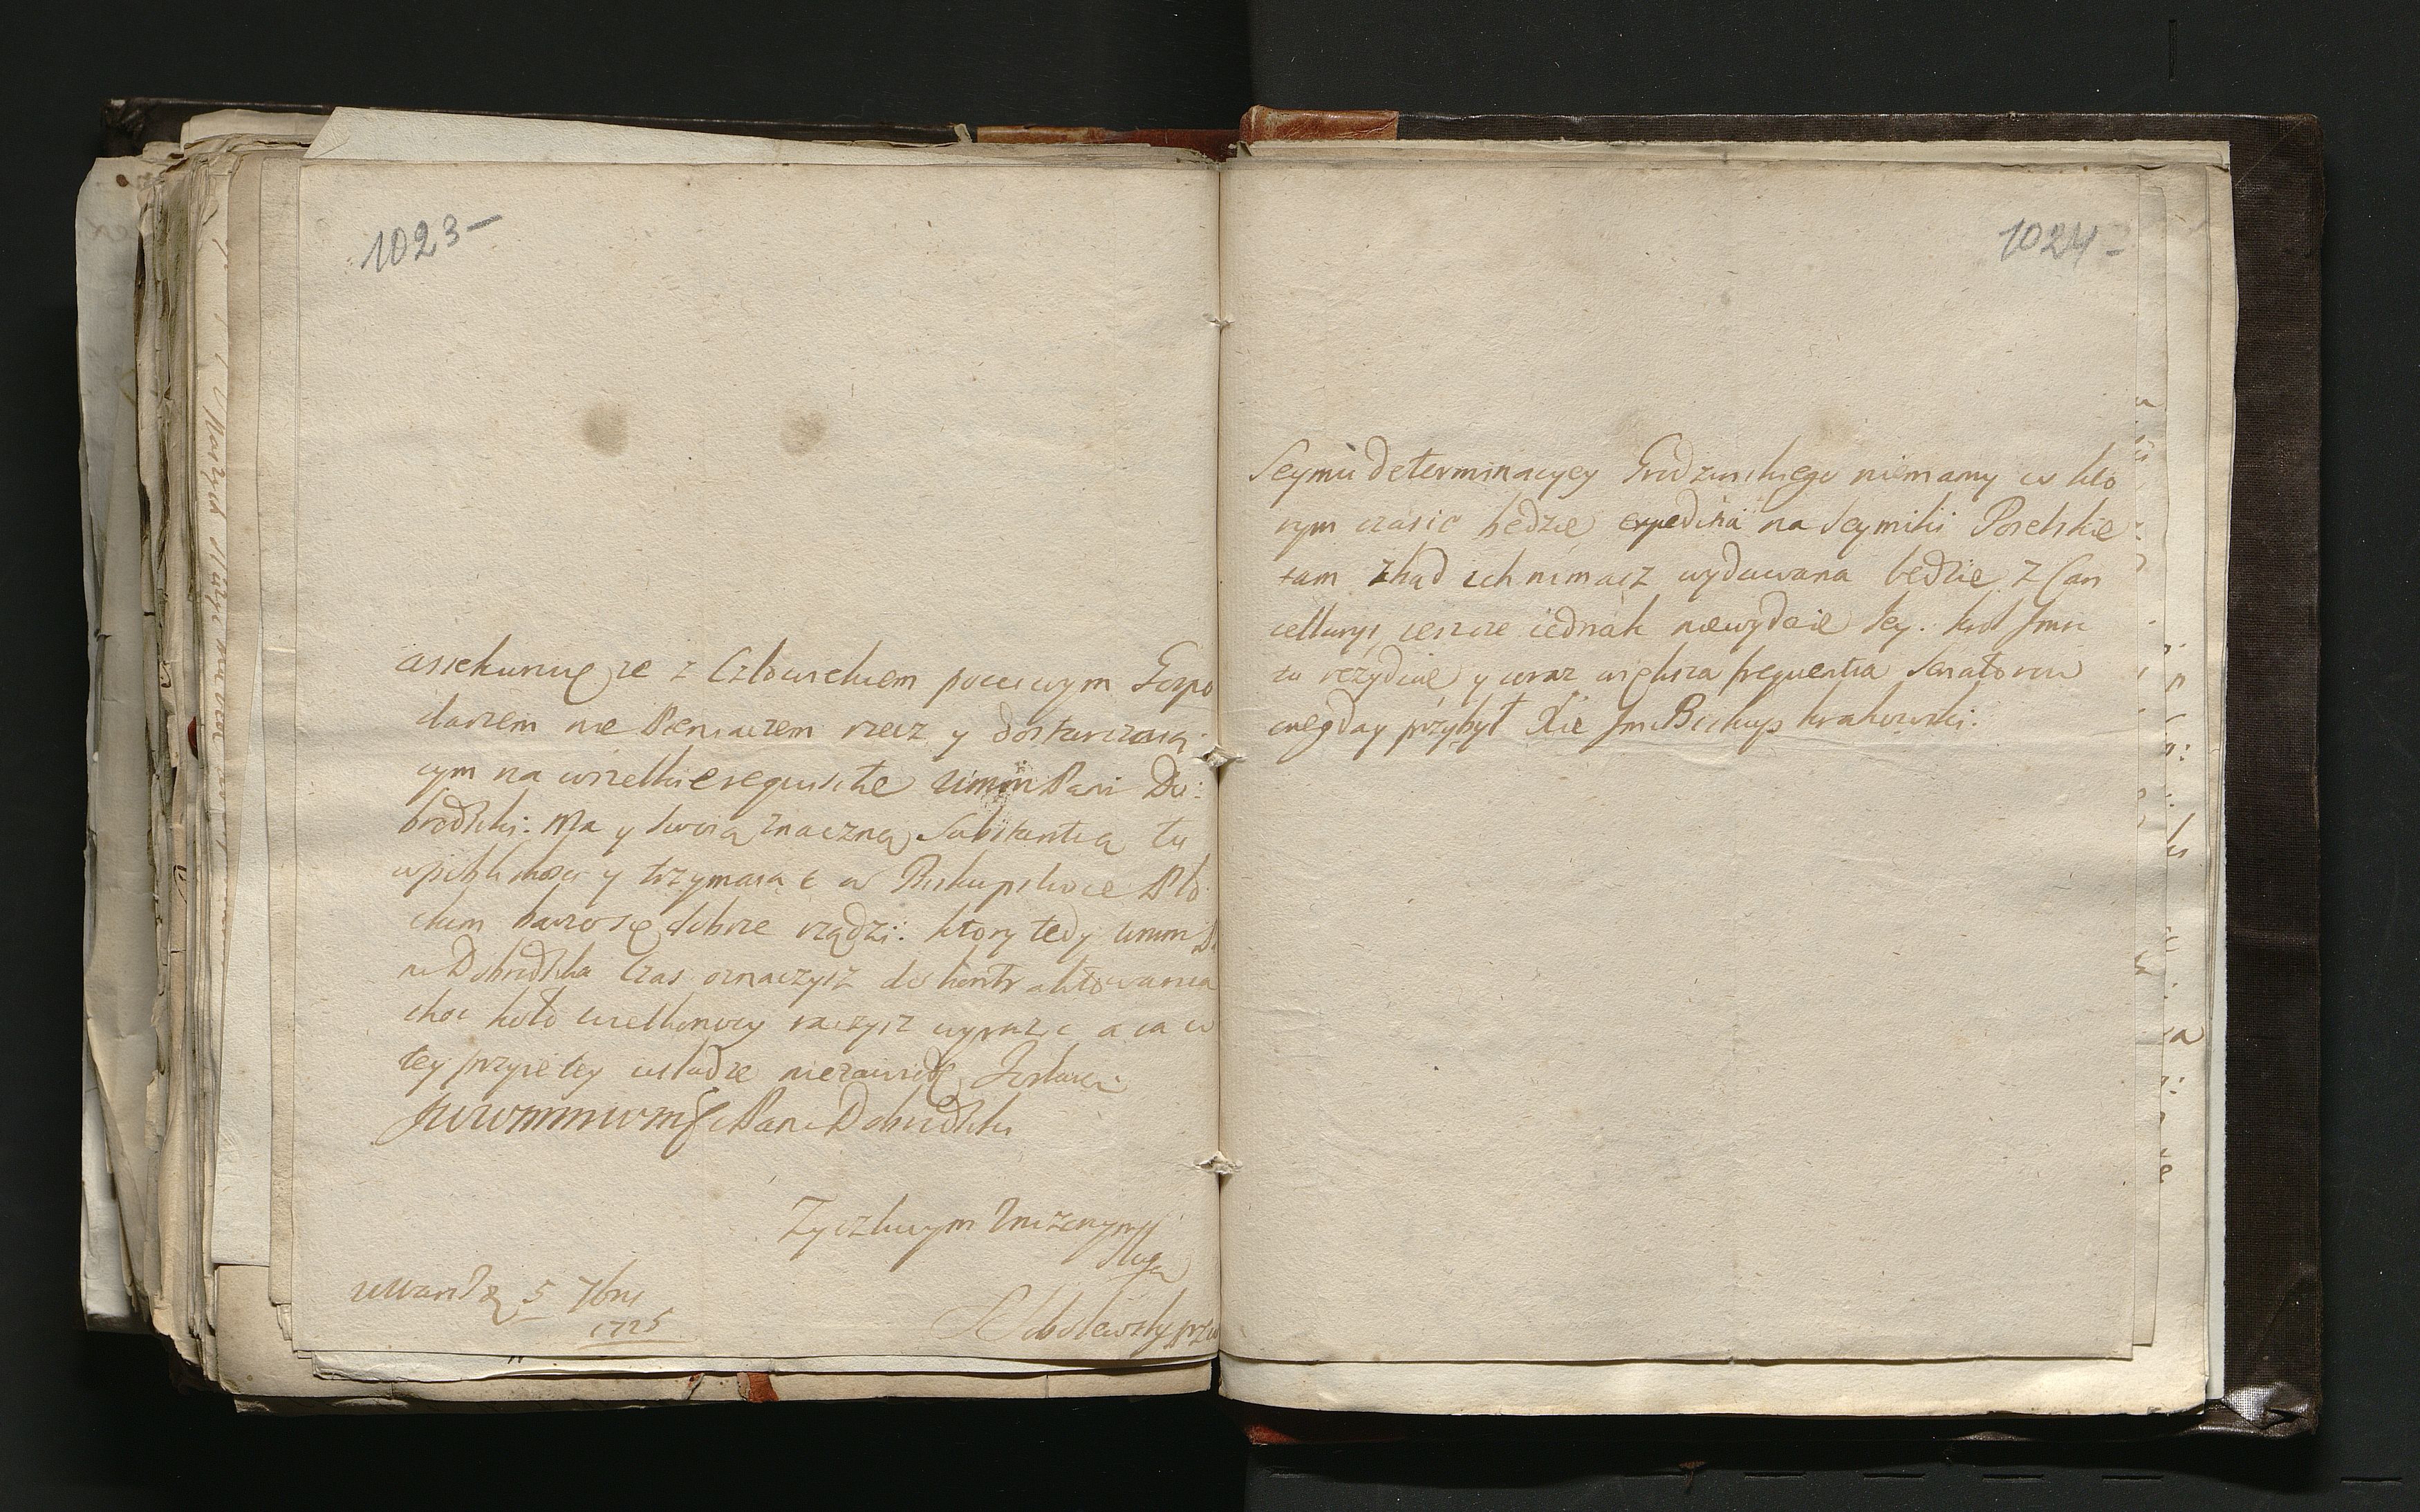 1023-
assekuruię ze z Człowiekiem poczciwym Gospo
darzem nie Pieniaczem rzecz y dostarczaią
cym na wszelkie requisite WImMPani Do:
brodzki: Ma y swoią znaczną Substantią tu
w pobliskosci y trzymaiąc w Biskupstwie Pło
ckim barzo się dobrze rządzi: ktory tedy
Dobrodzika Czas oznaczysz do kontraktowania
choc koło wielkonocy raczysz wyrazic a ia w
tey przyiętey władze niezawiodę Zostaiąc
Pani Dobrodziki
Zyczliwym Uniżonym
sługą
zWarszy 5 7bris
1725
Sobolewsky
1024-
Seymu determinacyey Grodzinskiego niemamy w kto
rym czasie będzie expedita na Seymiki Poselskie
tam zkąd ich nimasz wydawana będzie z Can
cellaryi ieszcze iednak niewydzie Sey. Krol Jmci
tu rezyduie y coraz większa frequentia Senatorow
onegday przybył Xże Jmc Biskup krakowski: